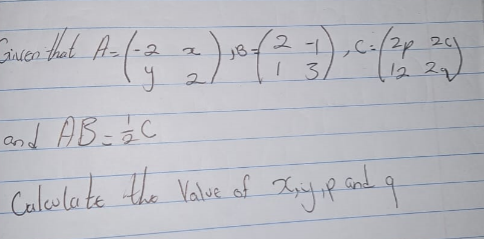 Given that A=(-2 x
y 2), B=(2 -1
1 3), C=(2p 2q
12 2q)
and AB=½C
Calculate the Value of x,y,p and q